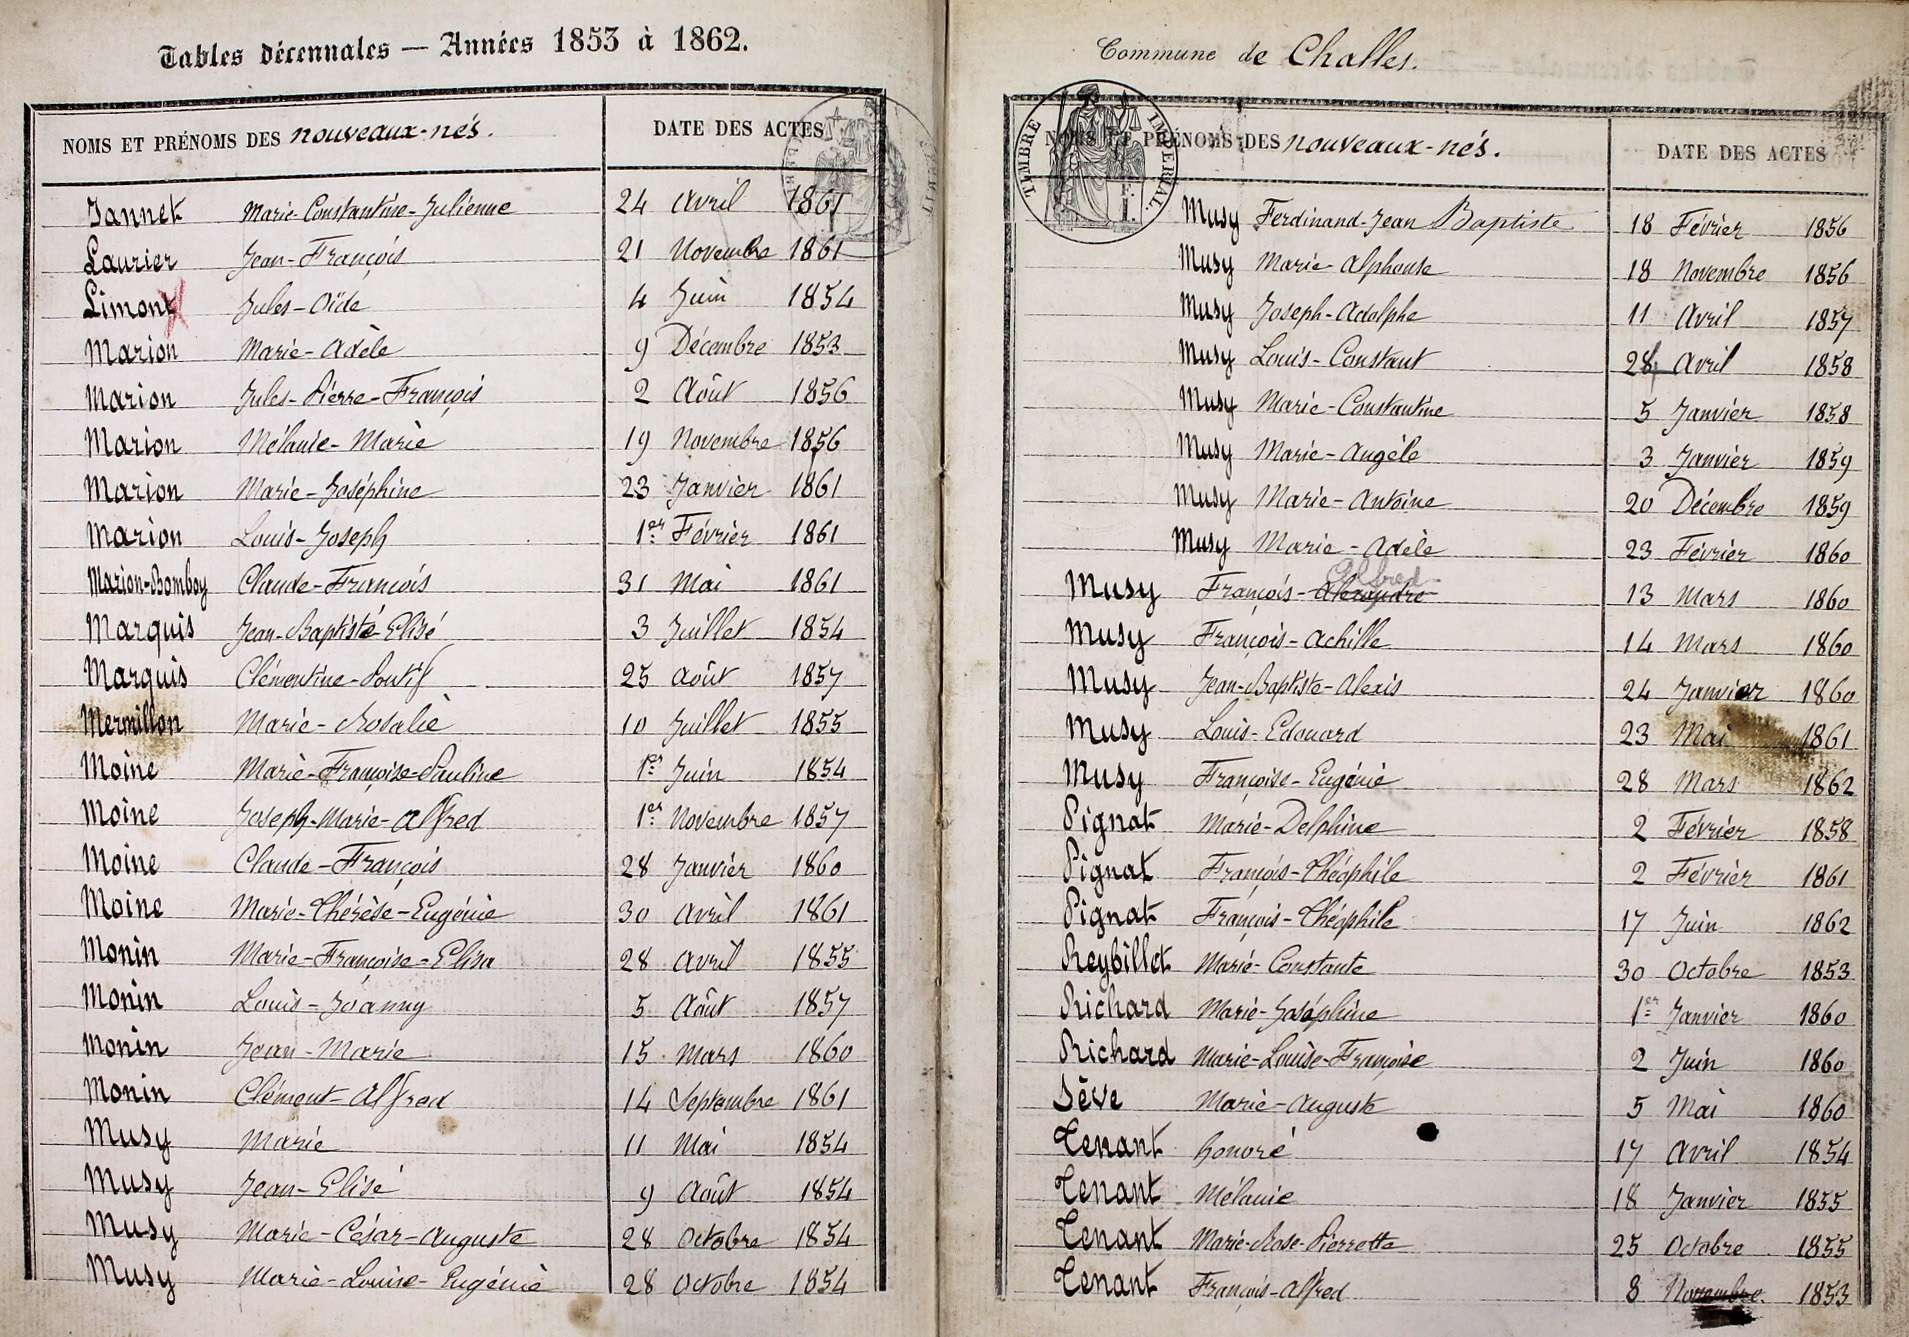 Tables décennales — Années 1853 à 1862.
NOMS ET PRÉNOMS DES nouveaux-nés. DATE DES ACTES
Jannet Marie-Constantine-Julienne 24 Avril 1861
Laurier Jean-François 21 Novembre 1861
Limont Jules-Oïde 4 Juin 1854
Marion Marie-Adèle 9 Décembre 1853
Marion Jules-Pierre-François 2 Août 1856
Marion Mélanie-Marie 19 Novembre 1856
Marion Marie-Joséphine 23 Janvier 1861
Marion Louis-Joseph 1er Février 1861
Marion-Bomboy Claude-François 31 Mai 1861
Marquis Jean-Baptiste Elisé 3 Juillet 1854
Marquis Clémentine-Pontif 25 Août 1857
Mermillon Marie-Rosalie 10 Juillet 1855
Moine Marie-Françoise-Pauline 1er Juin 1854
Moine Joseph-Marie-Alfred 1er Novembre 1857
Moine Claude-François 28 Janvier 1860
Moine Marie-Thérèse-Eugénie 30 Avril 1861
Monin Marie-Françoise-Elisa 28 Avril 1855
Monin Louis-Joanny 5 Août 1857
Monin Jean-Marie 15 Mars 1860
Monin Clément-Alfred 14 Septembre 1861
Musy Marie 11 Mai 1854
Musy Jean-Elisé 9 Août 1854
Musy Marie-César-Auguste 28 Octobre 1854
Musy Marie-Louise-Eugénie 28 Octobre 1854
Commune de Challes.
TIMBRE IMPERIAL
NOMS ET PRÉNOMS DES nouveaux-nés. DATE DES ACTES
Musy Ferdinand-Jean Baptiste 18 Février 1856
Musy Marie-Alphonse 18 Novembre 1856
Musy Joseph-Adolphe 11 Avril 1857
Musy Louis-Constant 28 Avril 1858
Musy Marie-Constantine 5 Janvier 1858
Musy Marie-Angèle 3 Janvier 1859
Musy Marie-Antoine 20 Décembre 1859
Musy Marie-Adèle 23 Février 1860
Alfred
Musy François-Alexandre 13 Mars 1860
Musy François-Achille 14 Mars 1860
Musy Jean-Baptiste-Alexis 24 Janvier 1860
Musy Louis-Edouard 23 Mai 1861
Musy Françoise-Eugénie 28 Mars 1862
Pignat Marie-Delphine 2 Février 1858
Pignat François-Théophile 2 Février 1861
Pignat François-Théophile 17 Juin 1862
Reybillet Marie-Constante 30 Octobre 1853
Richard Marie-Joséphine 1er Janvier 1860
Richard Marie-Louise-Françoise 2 Juin 1860
Sève Marie-Auguste 5 Mai 1860
Tenant Honoré 17 Avril 1854
Tenant Mélanie 18 Janvier 1855
Tenant Marie-Rose-Pierrette 25 Octobre 1855
Tenant François-Alfred 8 Novembre 1853